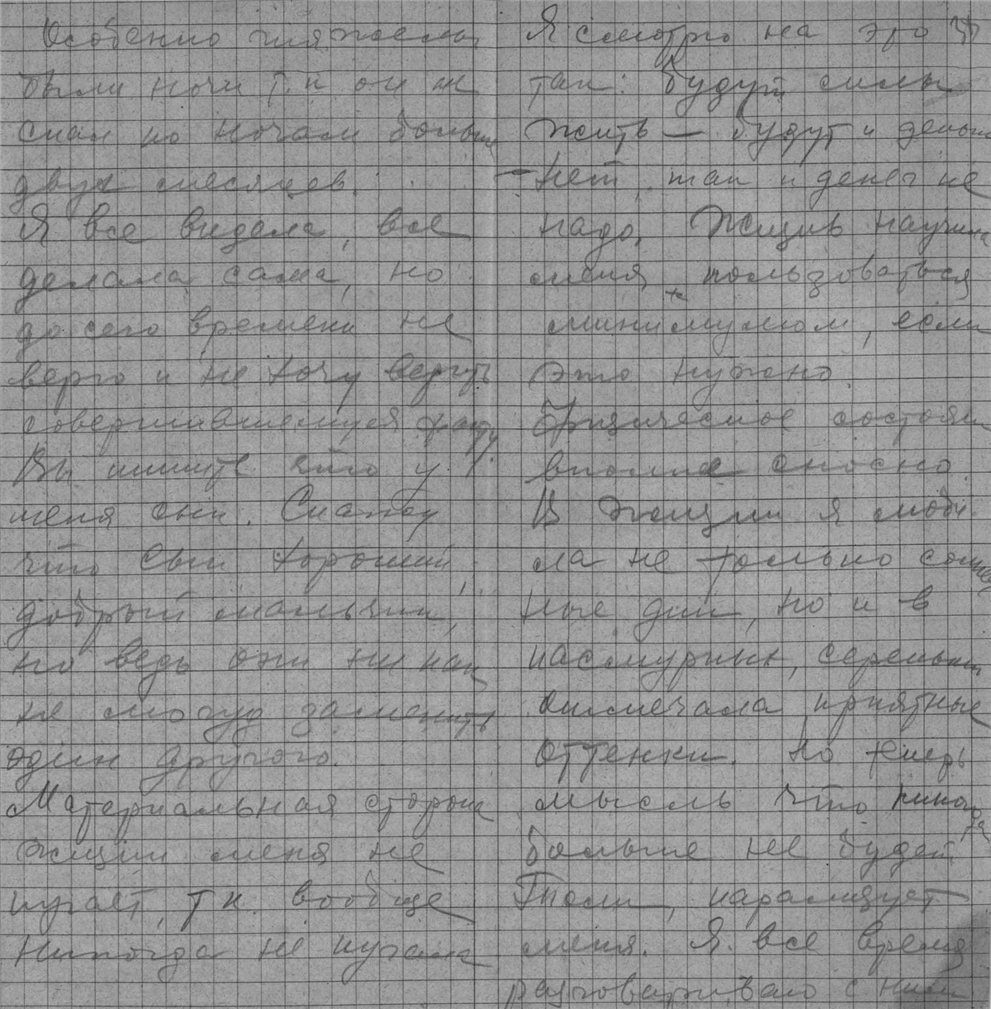 Особенно тяжелы
были ночи т.к он не
спал по ночам больше
двух месяцев.
Я все видела, все
делала сама, но
до сего времени не
верю и не хочу верить
совершившемуся факту.
Вы пишите что у
меня сын. Скажу
что сын хороший,
добрый мальчик,
но ведь они ни как
не могут заменить
один другого.
Материальная сторона
жизни меня не
пугает, т.к. вообще
никогда не пугала
Я смотрю на это
так: будут силы
жить — будут и деньги
— нет, так и денег не
надо. Жизнь научила
меня пользоваться
минимумом, если
это нужно.
Физическое состояни
вполне сносно.
В жизни я люби
ла не только солнеч
ные дни, но и в
пасмурных, сереньких
отмечала приятные
оттенки. Но теперь
мысль что никогда
больше не будет
Толи, парализует
меня. Я все время
разговариваю с ним